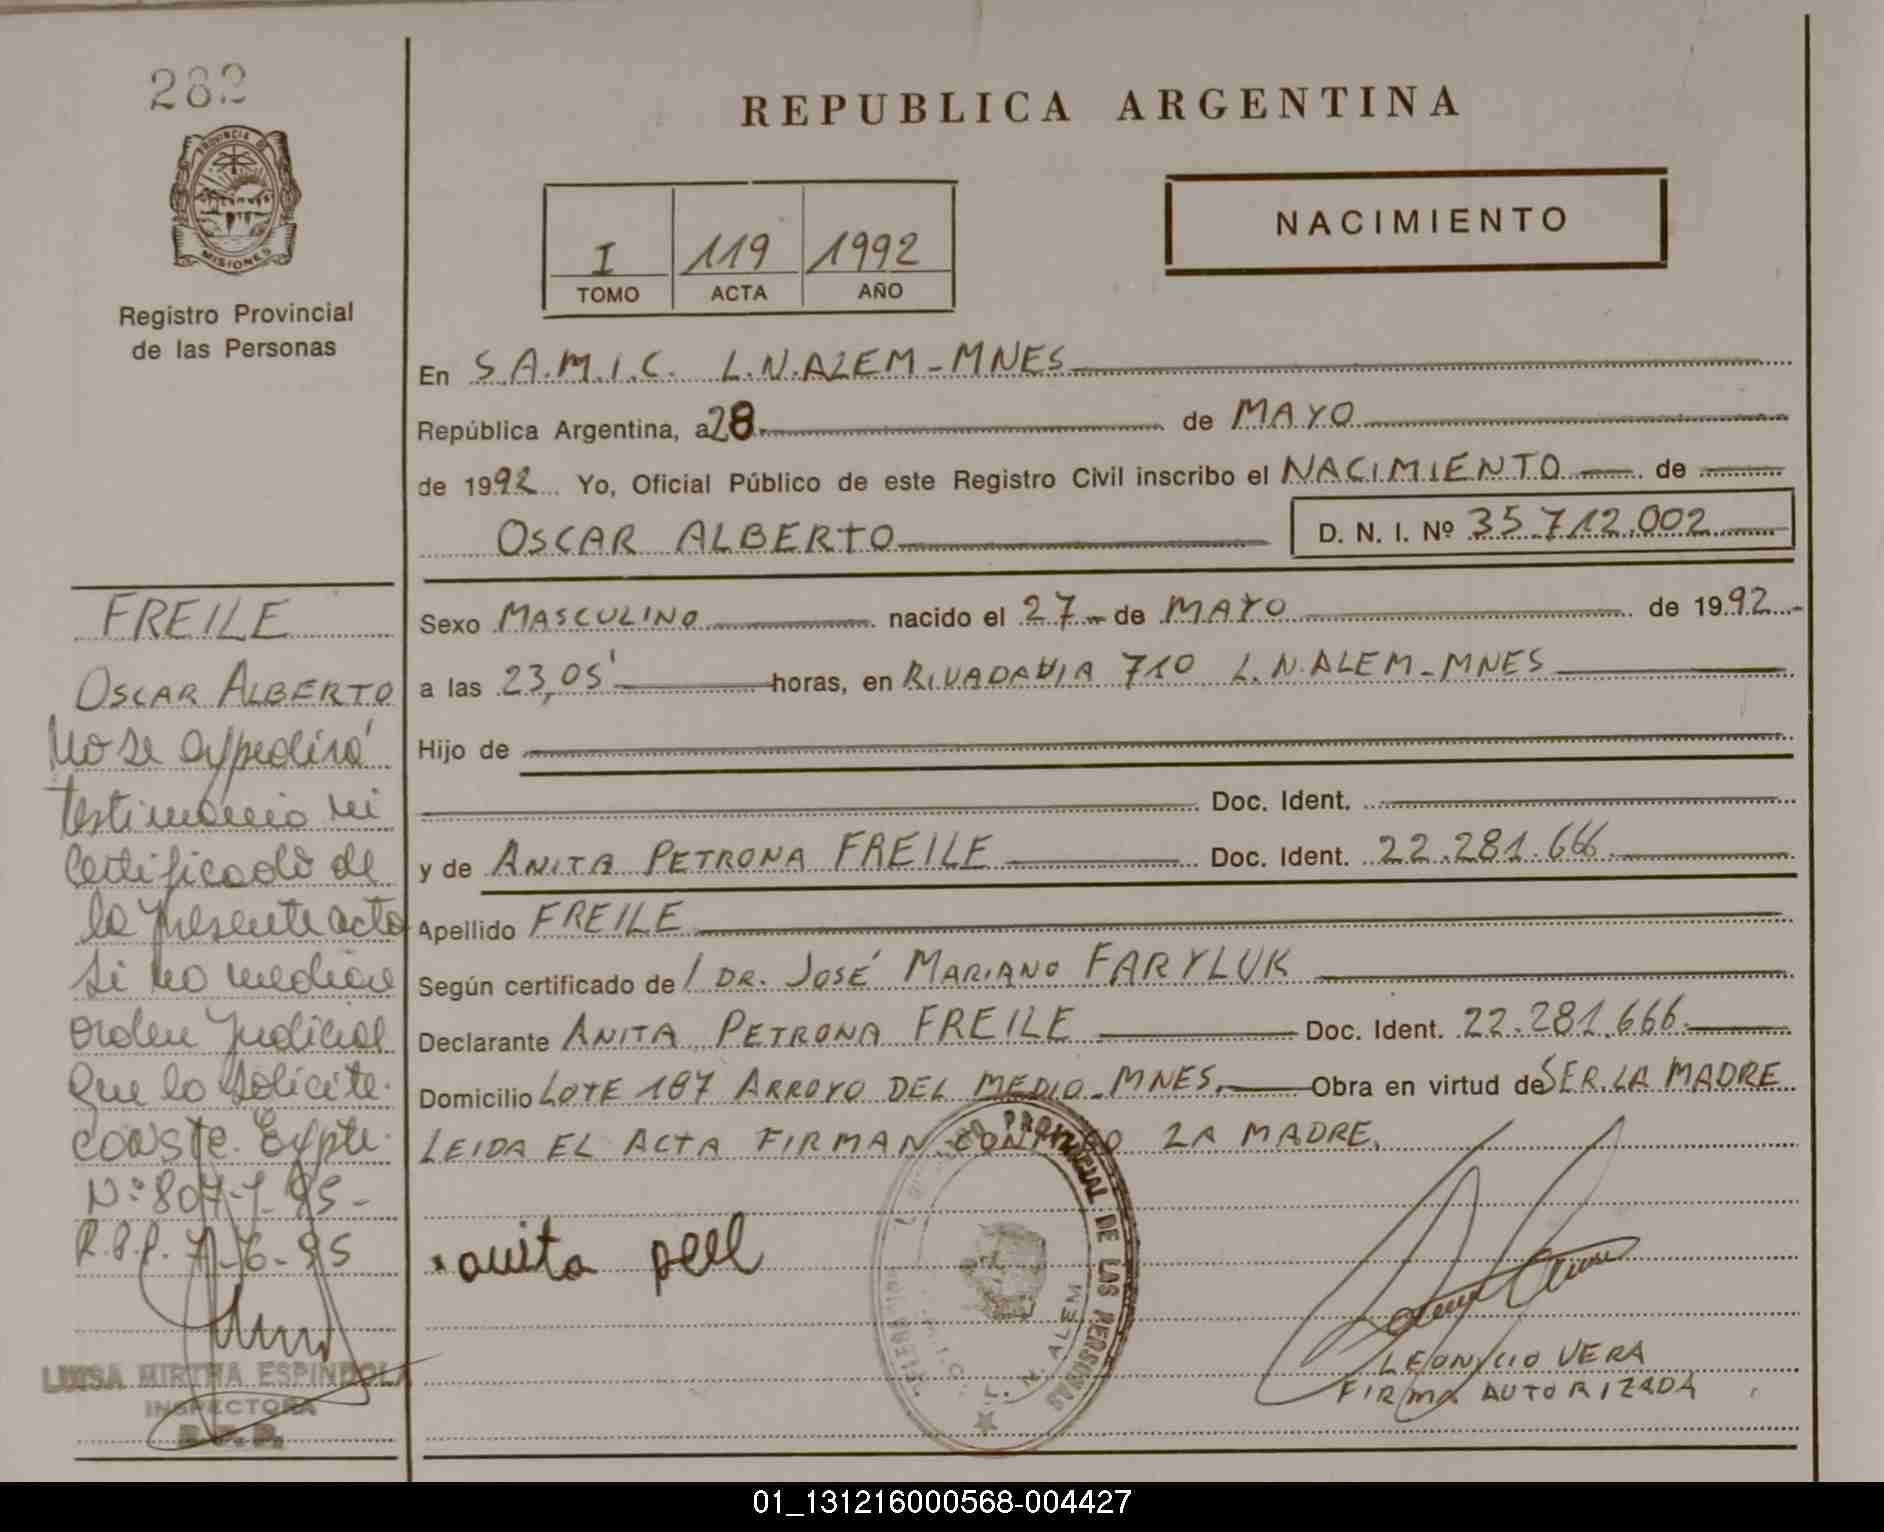 282
PROVINCIA DE
MISIONES
Registro Provincial
de las Personas
REPUBLICA ARGENTINA
I 119 1992
TOMO ACTA AÑO
NACIMIENTO
En S.A.M.I.C. L.N.ALEM-MNES
República Argentina, a 28 de MAYO
de 1992 Yo, Oficial Público de este Registro Civil inscribo el NACIMIENTO de
OSCAR ALBERTO D. N. I. Nº 35.712.002
Sexo MASCULINO nacido el 27 de MAYO de 1992
a las 23,05' horas, en RIVADAVIA 710 L.N.ALEM-MNES
Hijo de
Doc. Ident.
y de ANITA PETRONA FREILE Doc. Ident. 22.281.666
Apellido FREILE
Según certificado de / DR. JOSÉ MARIANO FARYLUK
Declarante ANITA PETRONA FREILE Doc. Ident. 22.281.666
Domicilio LOTE 187 ARROYO DEL MEDIO-MNES. Obra en virtud de SER LA MADRE
LEIDA EL ACTA FIRMAN CONMIGO LA MADRE.
anita
PROVINCIAL DE LAS PERSONAS
L. N. ALEM
LEONICIO VERA
FIRMA AUTORIZADA
FREILE
OSCAR ALBERTO
No se expedirá
testimonio ni
certificado de
la presente acta
si no mediare
orden Judicial
que lo solicite.
CONSTE. Expte.
Nº 807-1-95-
R.P.P. 7-6-95
LUISA MIRTHA ESPINDOLA
INSPECTORA
R.P.P.
01_131216000568-004427